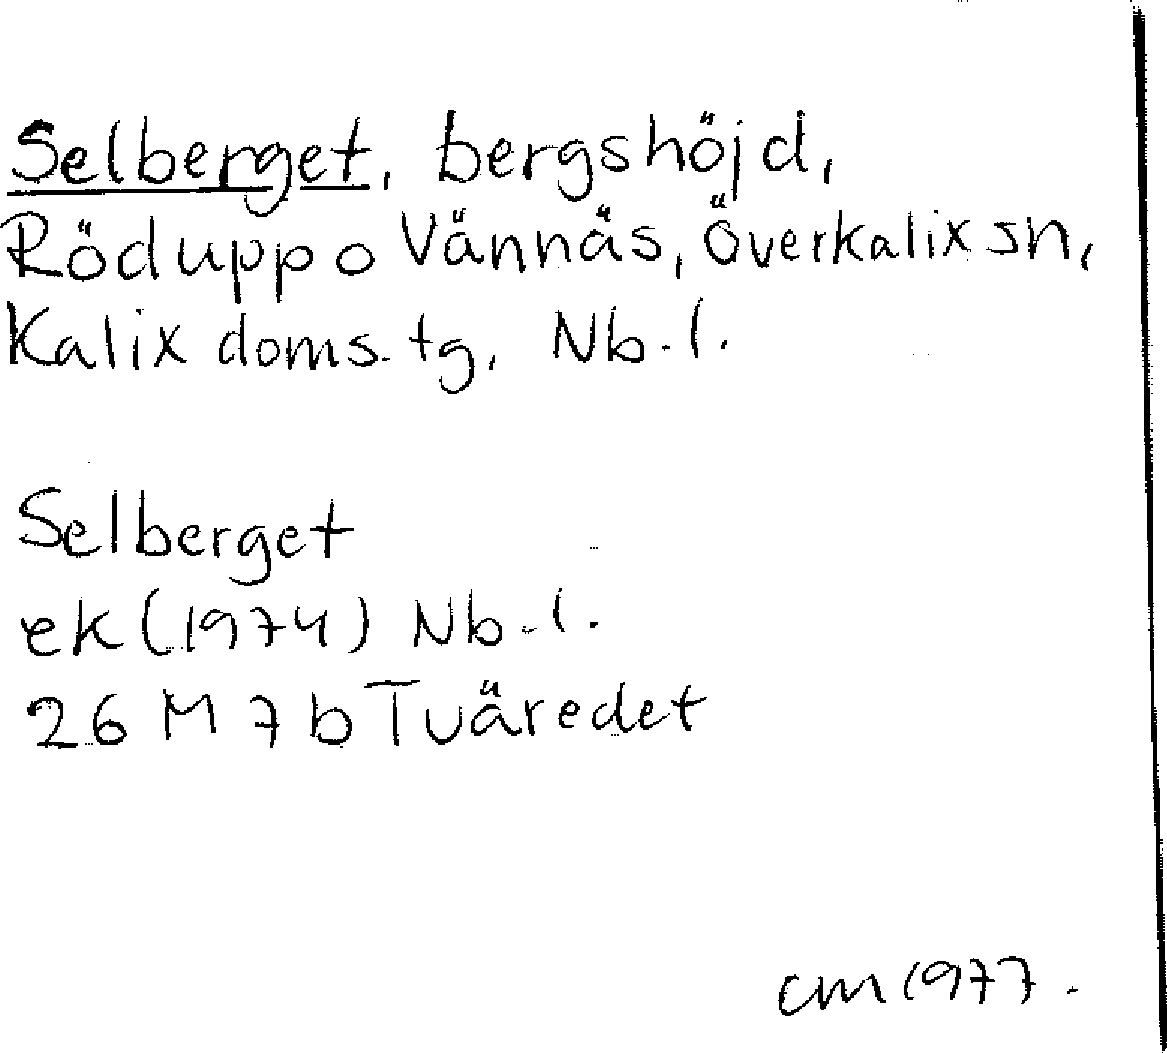 Selberget, bergshöjd,
Röduppo Vännäs, Överkalix sn,
Kalix doms. tg, Nb. l.
Selberget
ek (1974) Nb. l.
26 M 7 b Tväredet
cm 1977.